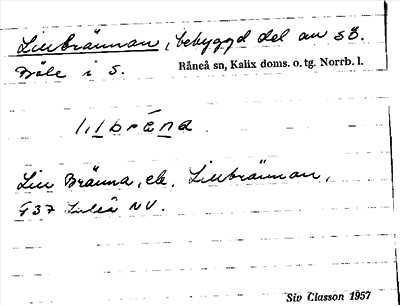 Lillbrännan, bebyggd del av sö.
Böle i S. Råneå sn, Kalix doms. o. tg. Norrb. l.
lilbrena
Lill Bränna, ek. Lillbrännan,
Luleå NV.
Siv Classon 1957